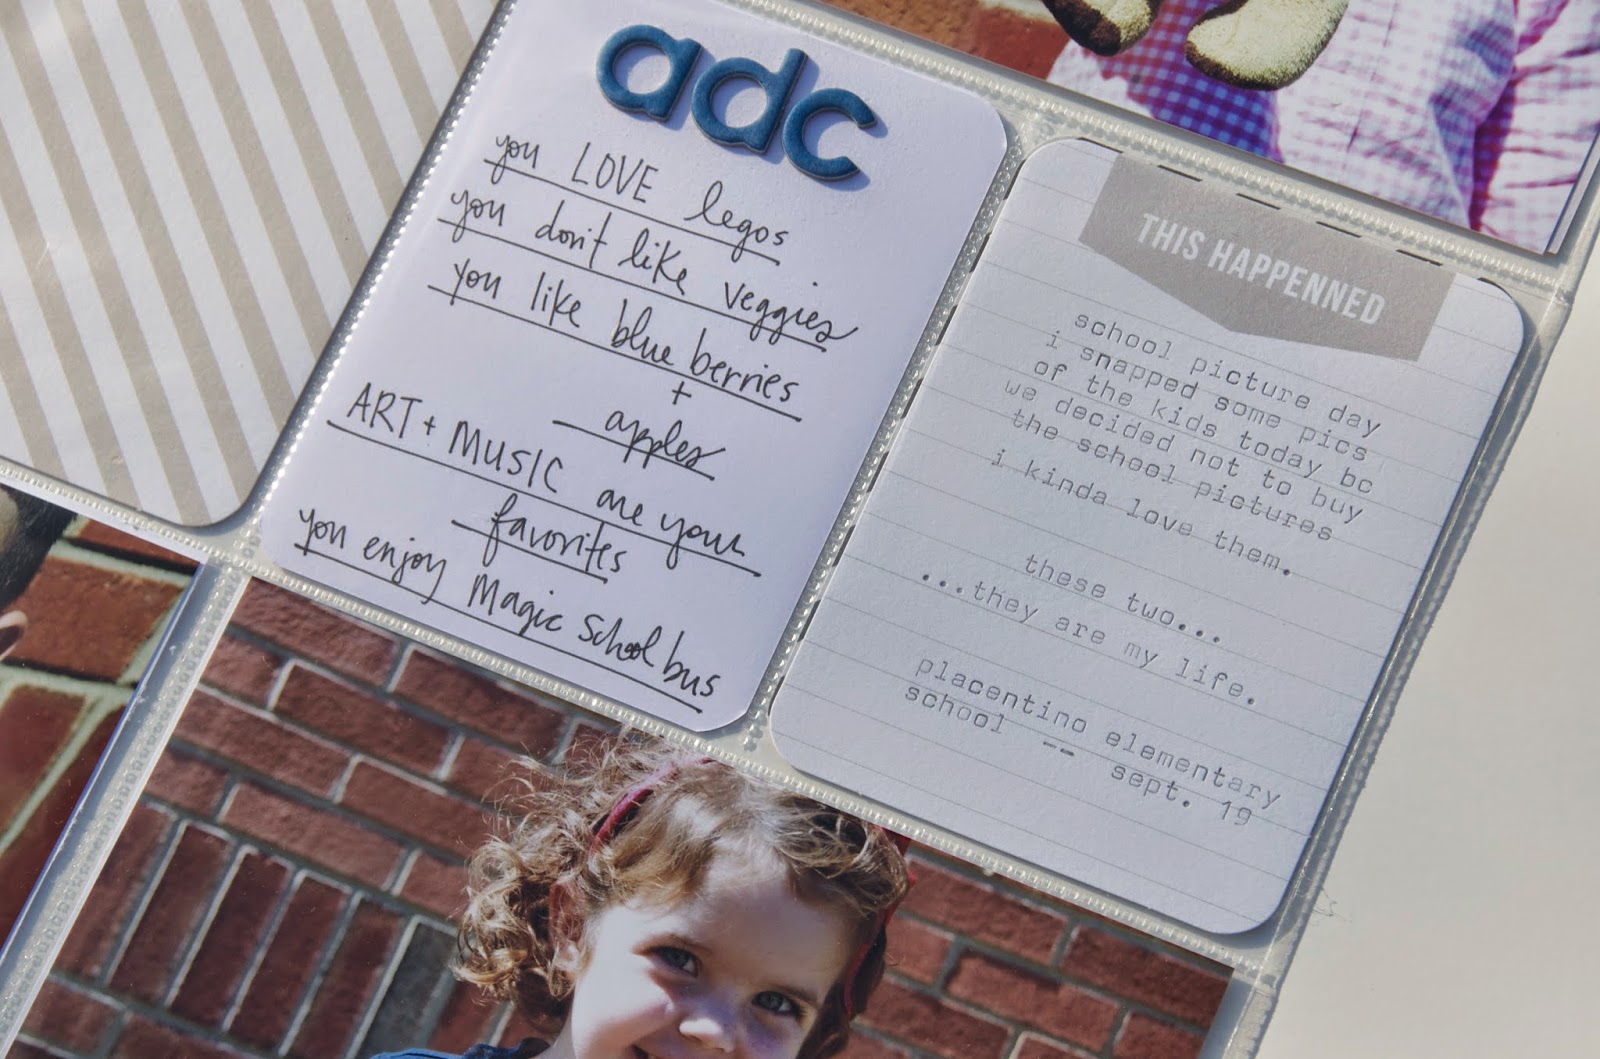 adc
you LOVE legos
you don't like veggies
you like blue berries
+
apples
ART + MUSIC are your
favorites
you enjoy Magic School bus
THIS HAPPENNED
school picture day
i snapped some pics
of the kids today bc
we decided not to buy
the school pictures
i kinda love them.
these two...
...they are my life.
placentino elementary
school -- sept. 19